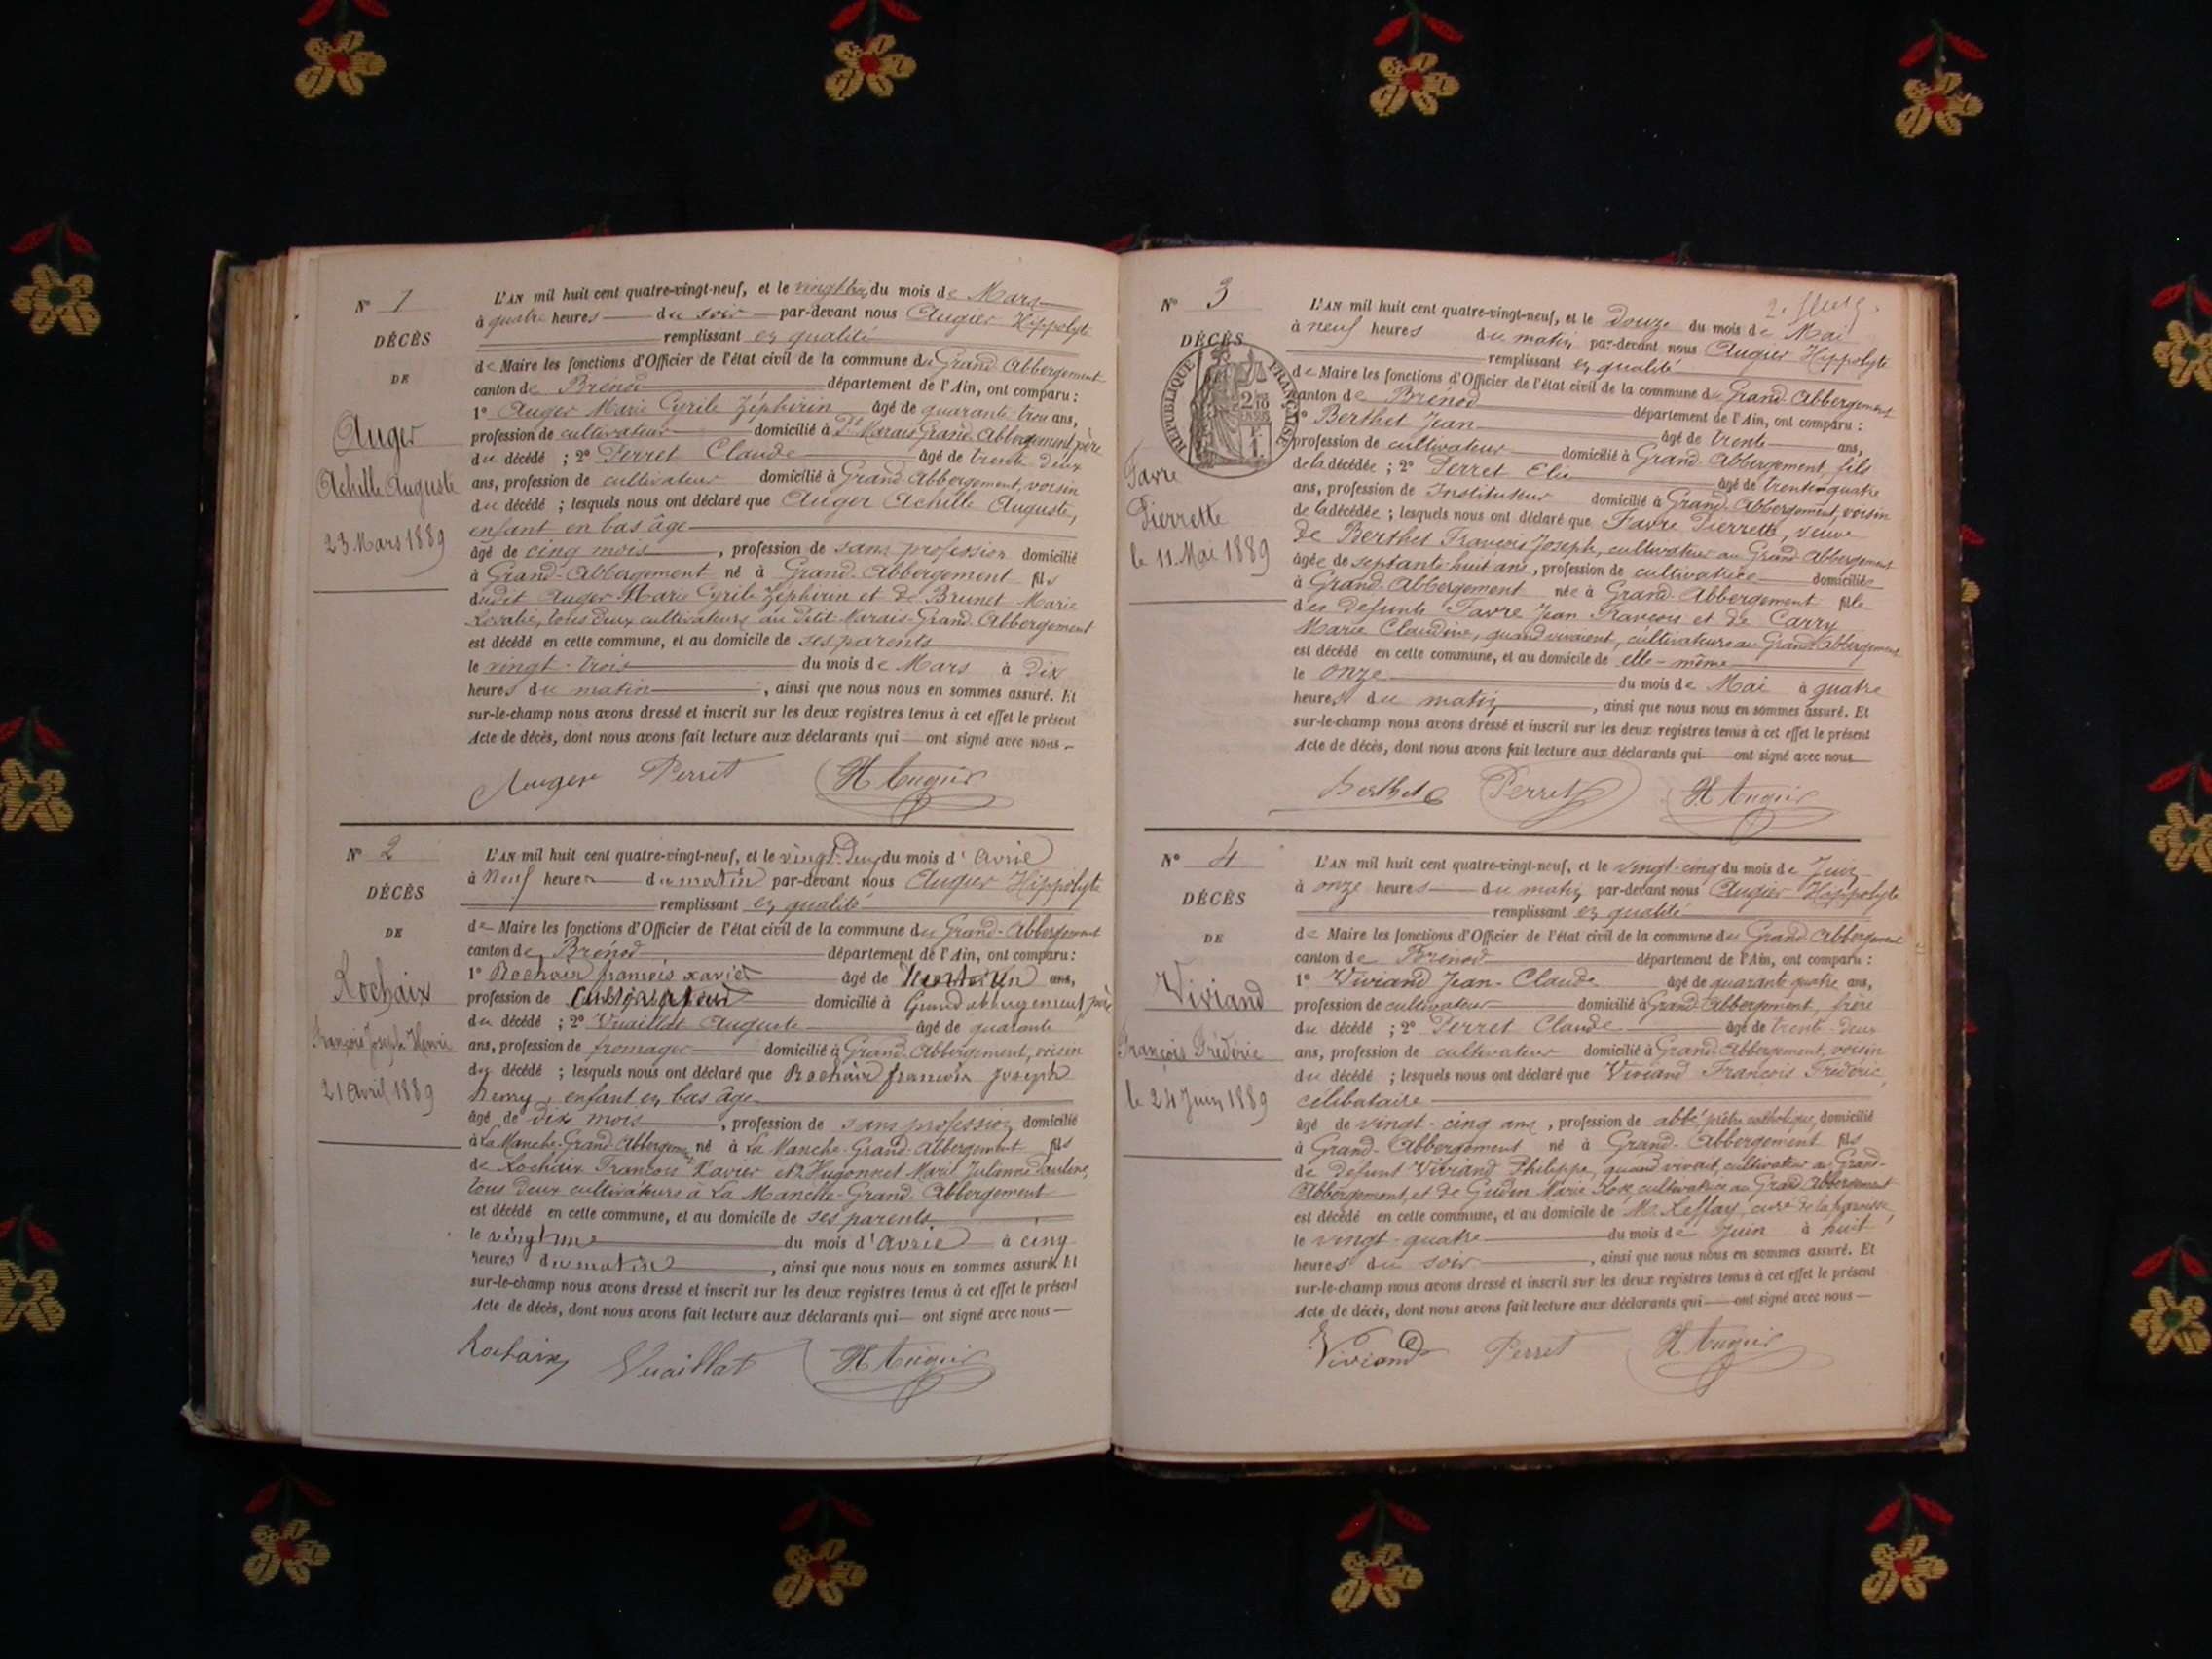 N° 1
DÉCÈS
DE
Auger
Achille Auguste
23 Mars 1889
L'AN mil huit cent quatre-vingt-neuf, et le vingt trois du mois de Mars
à quatre heures du soir par-devant nous Augier Hippolyte
remplissant en qualité
de Maire les fonctions d'Officier de l'état civil de la commune du Grand-Abbergement
canton de Brénod département de l'Ain, ont comparu :
1° Auger Marie Cyrile Zéphirin âgé de quarante-trois ans,
profession de cultivateur domicilié à Pt Marais Grand-Abbergement père
du décédé ; 2° Perret Claude âgé de trente deux
ans, profession de cultivateur domicilié à Grand-Abbergement, voisin
du décédé ; lesquels nous ont déclaré que Auger Achille Auguste,
enfant en bas âge
âgé de cinq mois, profession de sans profession domicilié
à Grand-Abbergement né à Grand-Abbergement fils
dudit Auger Marie Cyrile Zéphirin et de Brunet Marie
tous deux cultivateurs au Petit Marais-Grand-Abbergement
est décédé en cette commune, et au domicile de ses parents
le vingt-trois du mois de Mars à dix
heures du matin, ainsi que nous nous en sommes assuré. Et
sur-le-champ nous avons dressé et inscrit sur les deux registres tenus à cet effet le présent
Acte de décès, dont nous avons fait lecture aux déclarants qui ont signé avec nous
Auger Perret H Augier
N° 2
DÉCÈS
DE
Rochaix
François Joseph Henri
21 Avril 1889
L'AN mil huit cent quatre-vingt-neuf, et le vingt-deux du mois d'Avril
à Neuf heures du matin par-devant nous Augier Hippolyte
remplissant en qualité
de Maire les fonctions d'Officier de l'état civil de la commune du Grand-Abbergement
canton de Brénod département de l'Ain, ont comparu :
1° Rochaix françois xavier âgé de ans,
profession de cultivateur domicilié à Grand abbergement, père
du décédé ; 2° Vuaillat Auguste âgé de quarante
ans, profession de fromager domicilié à Grand-Abbergement, voisin
du décédé ; lesquels nous ont déclaré que Rochaix françois joseph
henry, enfant en bas âge
âgé de dix mois, profession de sans profession domicilié
à La Manche-Grand-Abbergement né à La Manche-Grand-Abbergement fils
de Rochaix François Xavier et d'Hugonnet Marie Julienne Pauline,
tous deux cultivateurs à La Manche-Grand-Abbergement
est décédé en cette commune, et au domicile de ses parents
le vingt une du mois d'Avril à cinq
heures du matin, ainsi que nous nous en sommes assuré. Et
sur-le-champ nous avons dressé et inscrit sur les deux registres tenus à cet effet le présent
Acte de décès, dont nous avons fait lecture aux déclarants qui ont signé avec nous
Rochaix Vuaillat H Augier
N° 3
DÉCÈS
RÉPUBLIQUE FRANÇAISE
Favre
Pierrette
le 11 Mai 1889
L'AN mil huit cent quatre-vingt-neuf, et le Douze du mois de Mai
à neuf heures du matin par-devant nous Augier Hippolyte
remplissant en qualité
de Maire les fonctions d'Officier de l'état civil de la commune du Grand-Abbergement
canton de Brénod département de l'Ain, ont comparu :
1° Berthet Jean âgé de trente ans,
profession de cultivateur domicilié à Grand-Abbergement, fils
de la décédée ; 2° Perret Elie âgé de trente-quatre
ans, profession de Instituteur domicilié à Grand-Abbergement, voisin
de la décédée ; lesquels nous ont déclaré que Favre Pierrette, veuve
de Berthet François Joseph, cultivateur au Grand-Abbergement
âgée de septante huit ans, profession de cultivatrice domiciliée
à Grand-Abbergement née à Grand-Abbergement fille
des defunts Favre Jean François et de Carry
Marie Claudine, quand vivaient, cultivateurs au Grand-Abbergement
est décédé en cette commune, et au domicile de elle-même
le onze du mois de Mai à quatre
heures du matin, ainsi que nous nous en sommes assuré. Et
sur-le-champ nous avons dressé et inscrit sur les deux registres tenus à cet effet le présent
Acte de décès, dont nous avons fait lecture aux déclarants qui ont signé avec nous
Berthet Perret H Augier
N° 4
DÉCÈS
DE
Viviand
François Frédéric
le 24 Juin 1889
L'AN mil huit cent quatre-vingt-neuf, et le vingt-cinq du mois de Juin
à onze heures du matin par-devant nous Augier Hippolyte
remplissant en qualité
de Maire les fonctions d'Officier de l'état civil de la commune du Grand-Abbergement
canton de Brénod département de l'Ain, ont comparu :
1° Viviand Jean-Claude âgé de quarante quatre ans,
profession de cultivateur domicilié à Grand-Abbergement, frère
du décédé ; 2° Perret Claude âgé de trente-deux
ans, profession de cultivateur domicilié à Grand-Abbergement, voisin
du décédé ; lesquels nous ont déclaré que Viviand François Frédéric,
célibataire
âgé de vingt-cinq ans, profession de abbé prêtre catholique, domicilié
à Grand-Abbergement né à Grand-Abbergement fils
de defunt Viviand Philippe, quand vivait, cultivateur au Grand-
Abbergement, et de Gudin Marie Rose, cultivatrice au Grand Abbergement
est décédé en cette commune, et au domicile de Mr Reffay, curé de la paroisse,
le vingt-quatre du mois de Juin à huit
heures du soir, ainsi que nous nous en sommes assuré. Et
sur-le-champ nous avons dressé et inscrit sur les deux registres tenus à cet effet le présent
Acte de décès, dont nous avons fait lecture aux déclarants qui ont signé avec nous
Viviand Perret H Augier